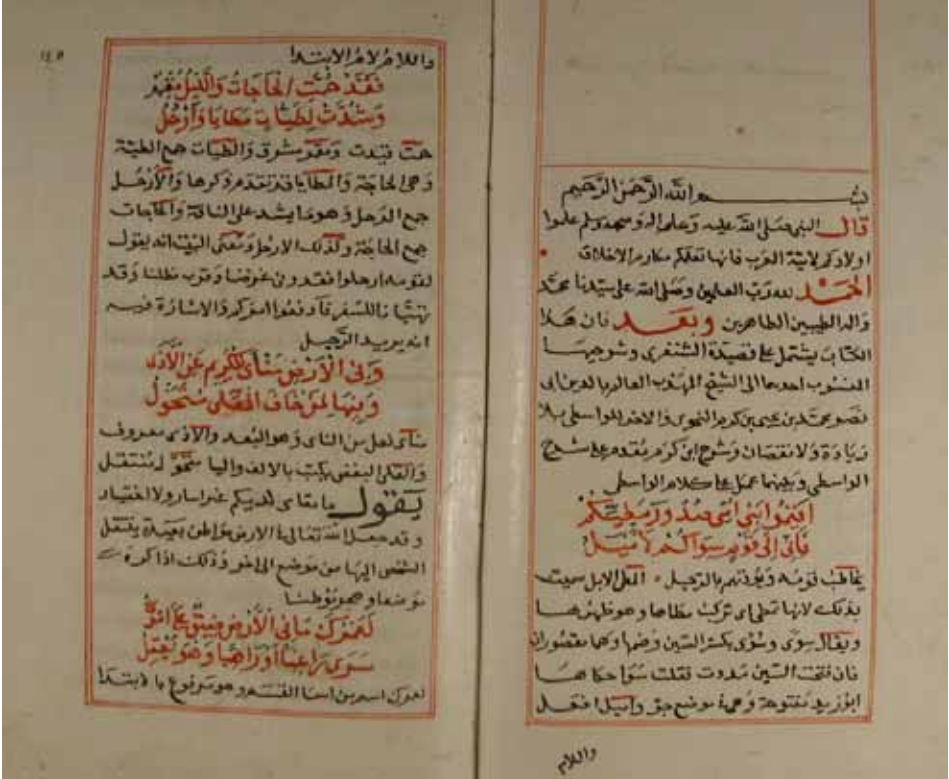 بسم الله الرحمن الرحيم
قال النبي صلى الله عليه وعلى اله وصحبه وسلم علموا
اولادكم لامية العرب فانها تعلمكم مكارم الاخلاق
الحمد لله رب العلمين وصلى الله على سيدنا محمد
واله الطيبين الطاهرين وبعد فان هذا
الكتاب يشتمل على قصيدة الشنفرى وشرحيها
المنسوب احدهما الى الشيخ المهذب العالم
محمد بن يحيى بن كرم النحوى والاخر للواسطى بلا
زيادة ولا نقصان وشرح ابن كرم مقدم على شرح
الواسطى وبينهما عمل على كلام الواسطى
اقيموا بني امي صدور مطيكم
فاني الى قوم سواكم لاميل
يخاطب قومه ويؤذنهم بالرحيل المطى الابل سميت
بذلك لانها تمطى اى تركب مطاها وهو ظهرها
ويقال سوى وسوى بكسر السين وضمها وهما مقصوران
فان فتحت السين مددت فقلت سواء حكاهما
ابو زيد مفتوحة وهى فى موضع جر واميل افعل
واللام
١٤٥
واللام لام الابتدا
فقد حمت الحاجات والليل مقمر
وشدت لطيات مطايا وارحل
حمت قيدت ومقمر مشرق والطيات جمع الطية
وهى الحاجة والمطايا قد تقدم ذكرها والارحل
جمع الرحل وهو ما يشد على الناقة والحاجات
جمع الحاجة وكذلك الارحل ومعنى البيت انه يقول
لقومه ارحلوا فقد دنى غرضنا وقرب مطلبنا وقد
تهيئنا للسفر فادفعوا اموركم والاشارة فيه
انه يريد الرحيل
وفى الارض منأى للكريم عن الاذى
وفيها لمن خاف القلى متحول
منأى مفعل من النأى وهو البعد والاذى معروف
والقلى البغض يكتب بالالف واليا متحول منتقل
يقول ما مقامى لديكم عن اسار ولا اختيار
وقد جعل الله تعالى فى الارض مواطن بعيدة ينتقل
الشخص اليها من موضع الى اخر وذلك اذا كره
موضعا وهجر موطنا
لعمرك ما فى الارض ضيق على امرئ
سرى راغبا او راهبا وهو يعقل
لعمرك اسم من اسما القسم وهو مرفوع بالابتدا